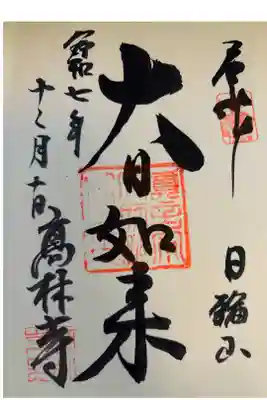 日輪山
大日如来
令和七年
十二月十日
高林寺